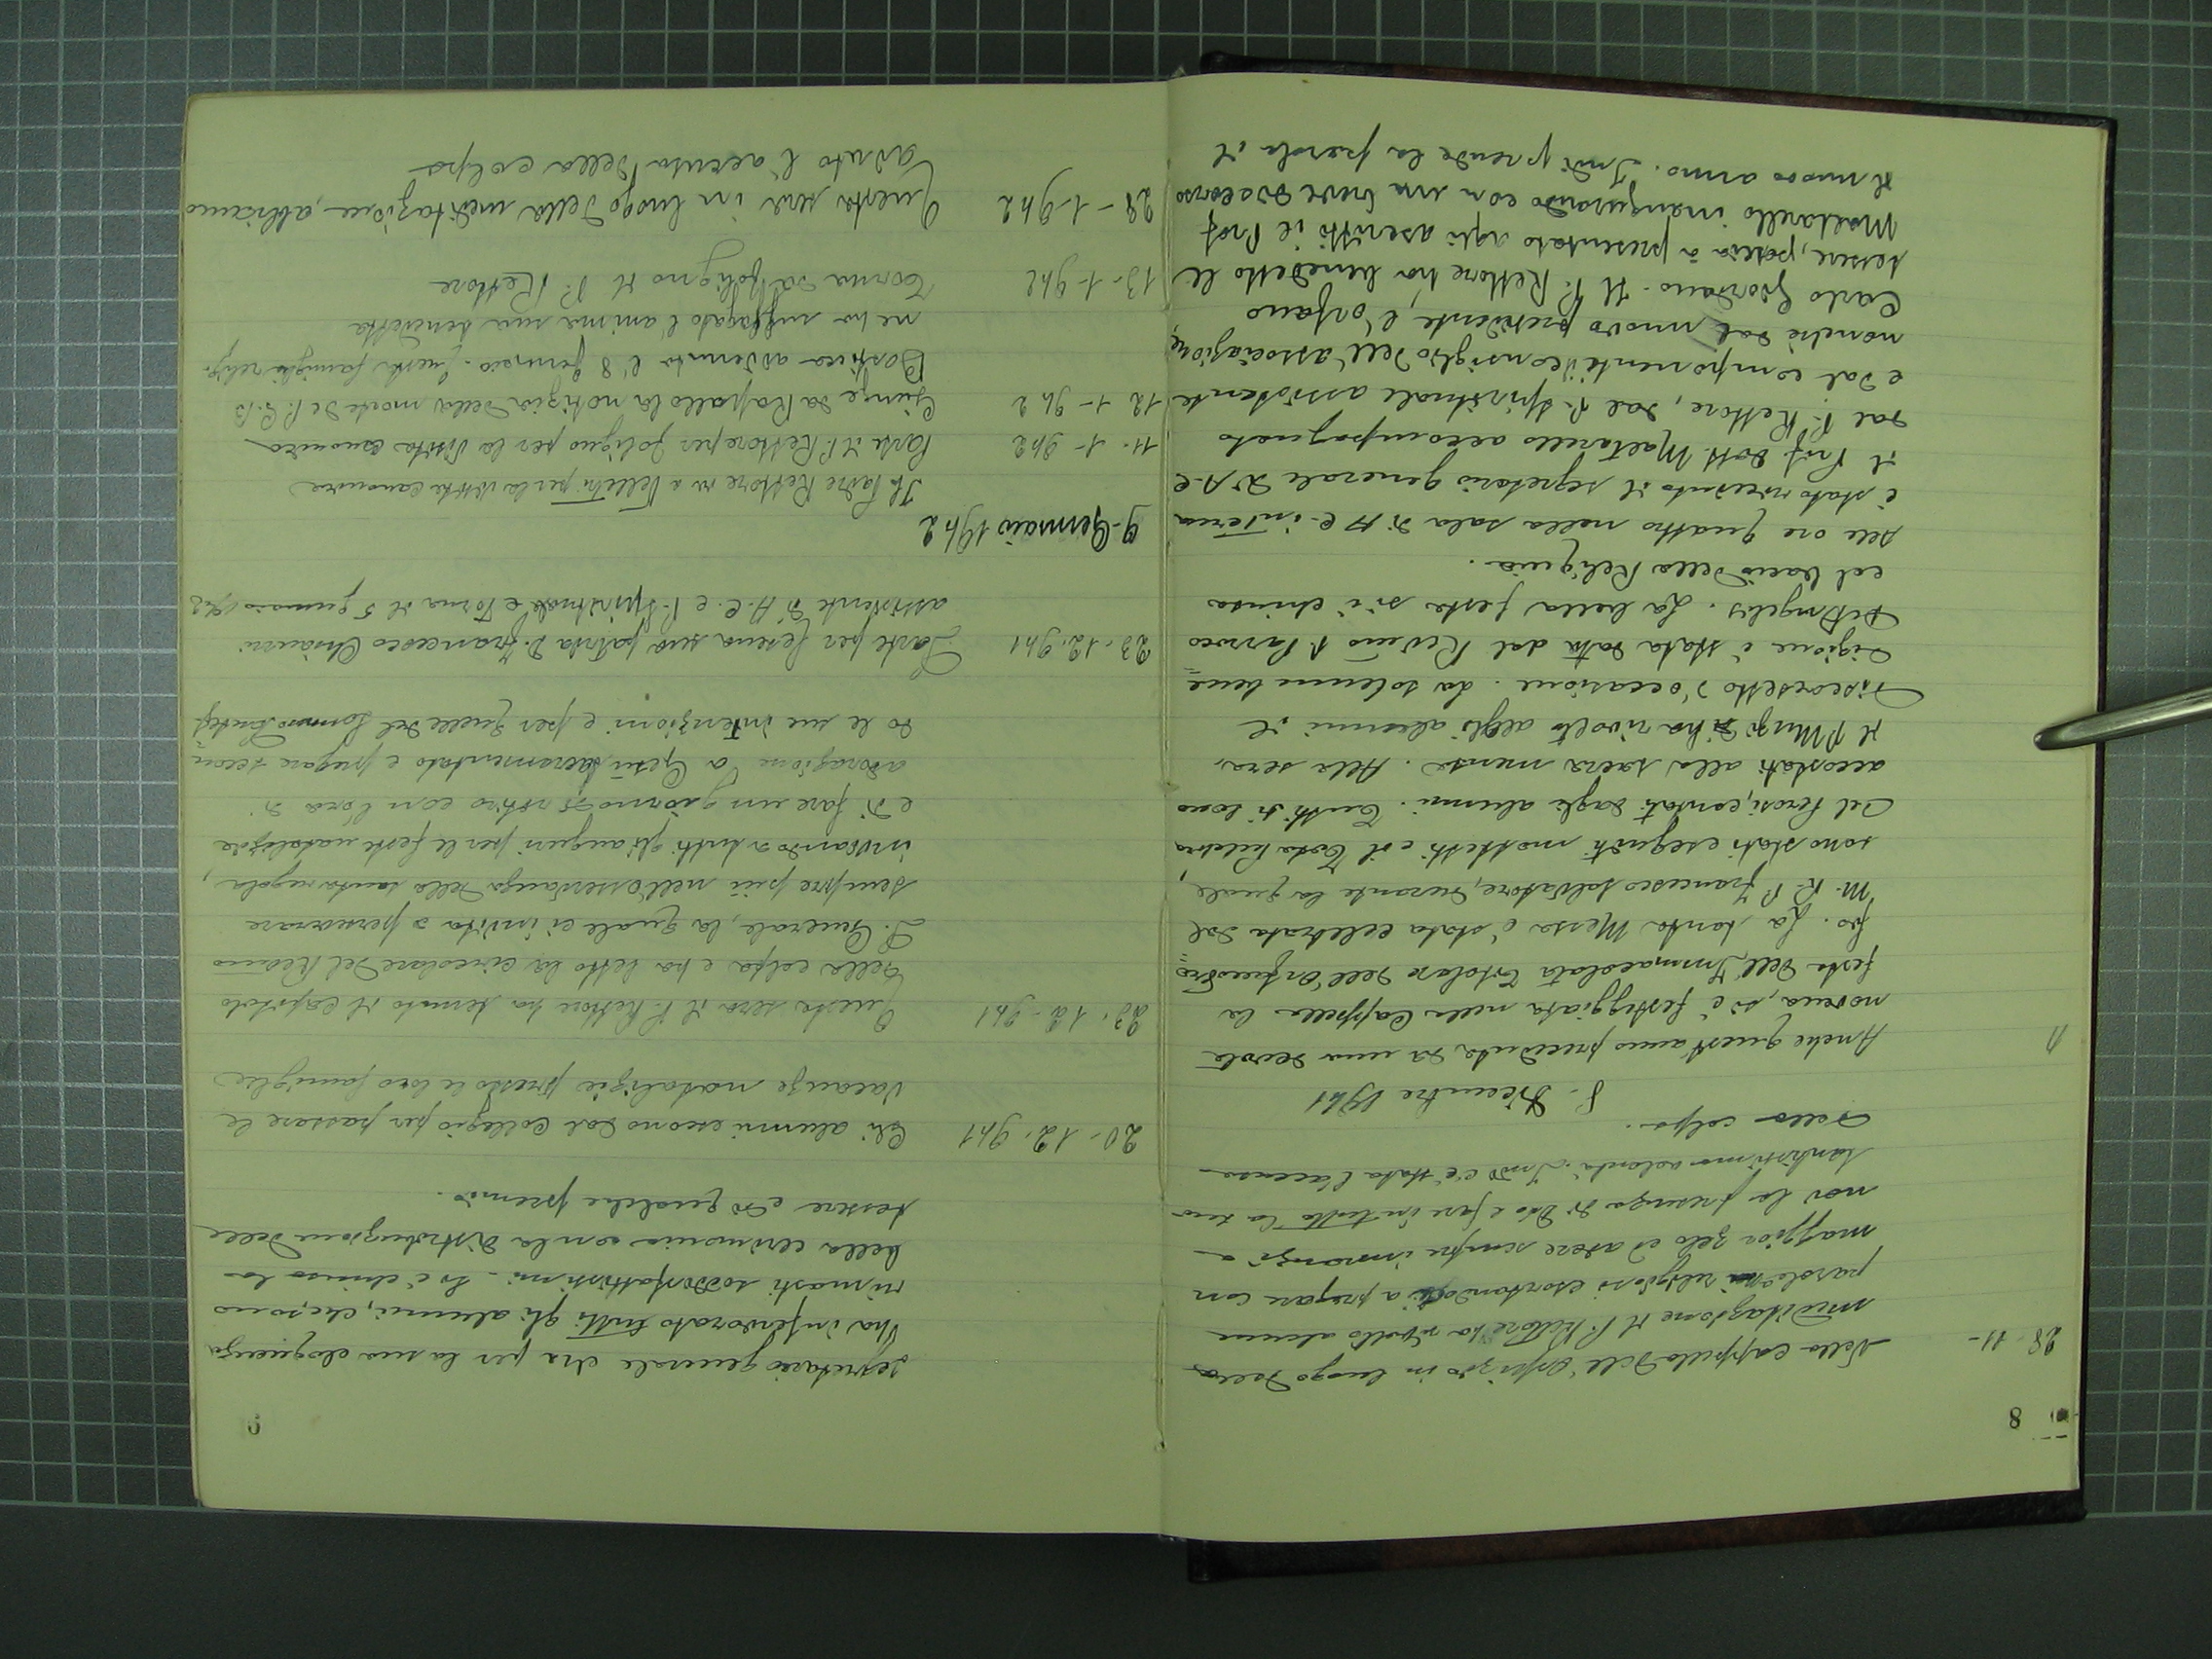 8
28-11-
Nella Cappella dell'Ospizio in luogo della
meditazione il P. Rettore ha rivolto alcune
parole ai religiosi esortandoli a pregare con
maggior zelo ed avere sempre innanzi a
noi la presenza di Dio e fare in tutto la sua
santissima volontà. Indi c'è stata l'accusa
della colpa.
8. Dicembre 1941
Anche quest'anno preceduta da una devota
novena, si è festeggiata nella Cappella la
festa dell'Immacolata titolare dell'Orfanotro=
fio. La santa Messa è stata celebrata dal
M. R. P. Francesco Salvatore, durante la quale,
sono stati eseguiti mottetti e il Tota Pulchra
del Perosi, cantati dagli alunni. Tutti si sono
accostati alla sacra mensa. Alla sera
il P. Muzi ha rivolto agli alunni il
discorsetto d'occasione. La solenne bene=
dizione è stata data dal Rev.mo P. Parroco
De Angelis. La bella festa si è chiusa
col bacio della Reliquia.
Alle ore quattro nella sala di A.C. interna
è stato ricevuto il segretario generale di A.C.
il Prof. Dott. Maltarello accompagnato
dal P. Rettore, dal P. Spirituale assistente
e dal componenti il Consiglio dell'associazione,
nonchè dal nuovo presidente, l'orfano
Carlo Giordano. Il P. Rettore ha benedetto le
tessere, poscia à presentato agli ascritti il Prof
Maltarello inaugurando con un breve discorso
il nuovo anno. Indi prende la parola il
segretario generale che per la sua eloquenza
ha infervorato tutti gli alunni, che, sono
rimasti soddisfattissimi. Si è chiusa la
bella cerimonia con la distribuzione delle
tessere e di qualche premio.
20-12-941 Gli alunni escono dal Collegio per passare le
vacanze natalizie presso le loro famiglie
23-12-941 Questa sera il P. Rettore ha tenuto il Capitolo
della colpa e ha letto la circolare del Rev.mo
P. Generale, la quale ci invita a perseverare
sempre più nell'osservanza della santa regola,
inviando a tutti gli auguri per le feste natalizie
e di fare un giorno di ritiro con l'ora di
adorazione a Gesù Sacramentato e pregare secon
do le sue intenzioni e per quelle del Sommo Pontef.
23-12-941 Parte per Cesena sua patria D. Francesco
assistente di A.C. e P. Spirituale e torna il 5 gennaio 1942
9-Gennaio 1942
Il Padre Rettore va a Velletri per la visita canonica
11-1-942 Parte il P. Rettore per Foligno per la visita canonica
12-1-942 Giunge da Rapallo la notizia della morte di P. G. B.
avvenuta l'8 gennaio. Questa famiglia relig.
ne ha suffragato l'anima sua benedetta
13-1-942 Torna da Foligno il P. Rettore
28-1-942 Questa sera in luogo della meditazione, abbiamo
avuto l'accusa della colpa